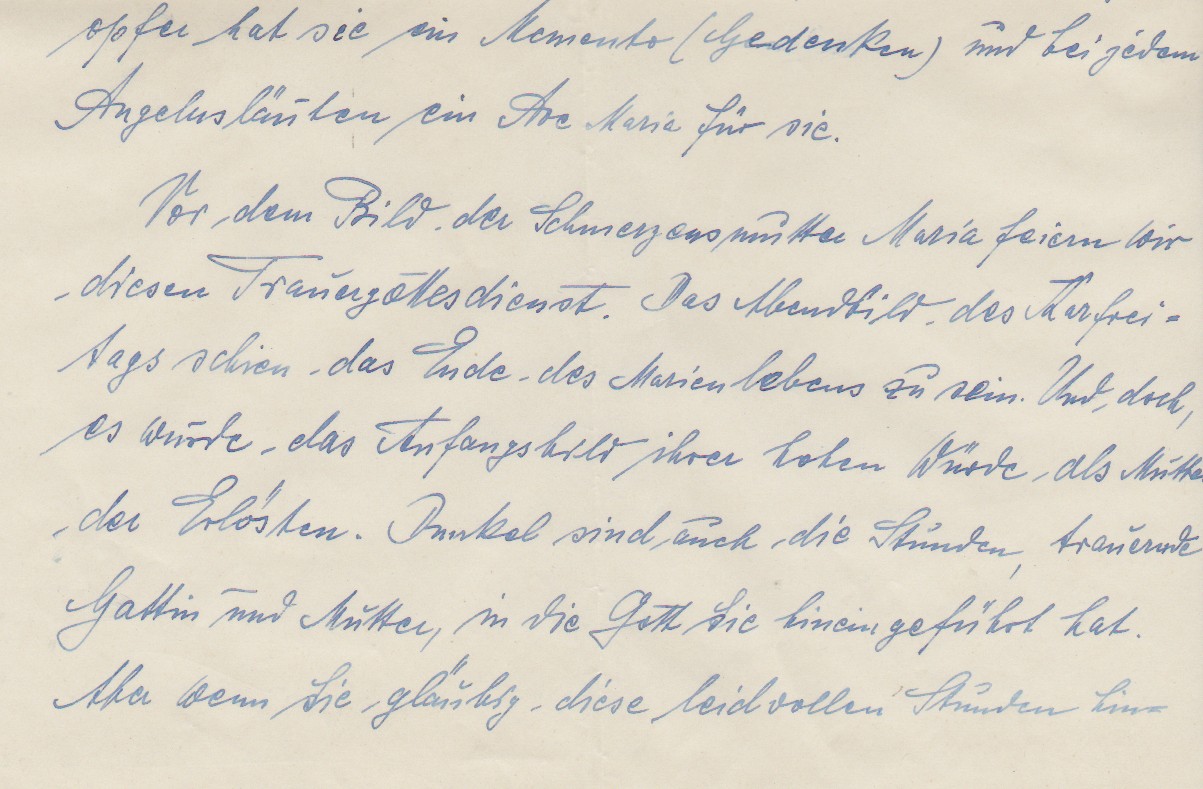 opfer hat sie ein Memento (Gedenken) und bei jedem
Angelusläuten ein Ave Maria für sie.
Vor dem Bild der Schmerzensmutter Maria feiern wir
diesen Trauergottesdienst. Das Abendbild des Karfrei=
tags schien das Ende des Marienlebens zu sein. Und, doch,
es wurde das Anfangsbild ihrer hohen Würde als Mutter
der Erlösten. Dunkel sind auch die Stunden, trauernde
Gattin und Mutter, in die Gott Sie hineingeführt hat.
Aber wenn Sie gläubig diese leidvollen Stunden hin=